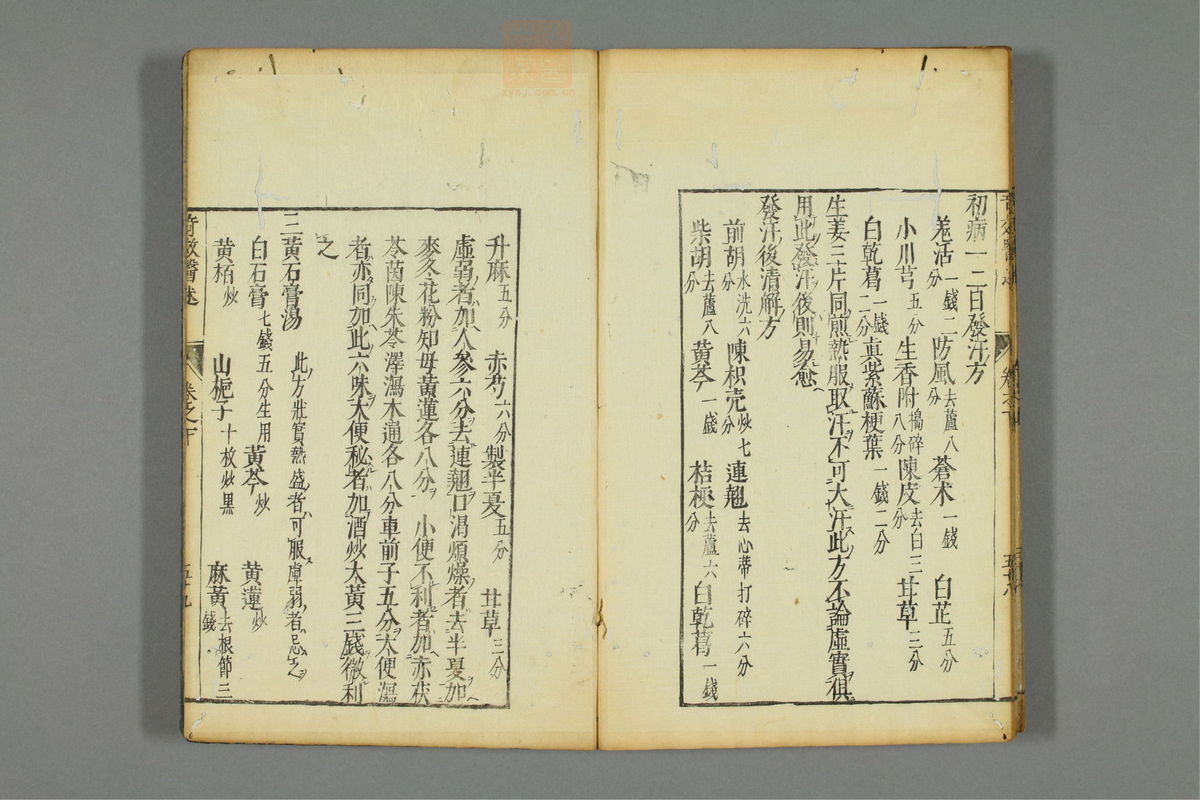 初病一二日發汗方
羗活一錢二分 防風去蘆八分 蒼术一錢 白芷五分
小川芎五分 生香附搗碎八分 陳皮去白三分 甘草三分
白乾葛一錢二分 真紫蘇梗葉一錢二分
生姜三片同煎熱服取汗不可大汗此方不論虛實俱
用此發汗後則易愈
發汗後清解方
前胡水洗六分 陳枳壳炒七分 連翹去心蒂打碎六分
柴胡去蘆八分 黄芩一錢 桔梗去蘆六分 白乾葛一錢
升麻五分 赤芍六分 製半夏五分 甘草三分
虛弱者加人參六分去連翹口渴煩燥者去半夏加
麥冬花粉知母黄蓮各八分 小便不利者加赤茯
苓茵陳朱苓澤瀉木通各八分車前子五分大便瀉
者亦同加此六味大便秘者加酒炒大黄三錢微利
之
三黄石膏湯 此方壯實熱盛者可服虛弱者忌之
白石膏七錢五分生用 黄芩炒 黄蓮炒
黄栢炒 山梔子十枚炒黒 麻黄去根節三錢
竒效醫述 卷之下 五十九